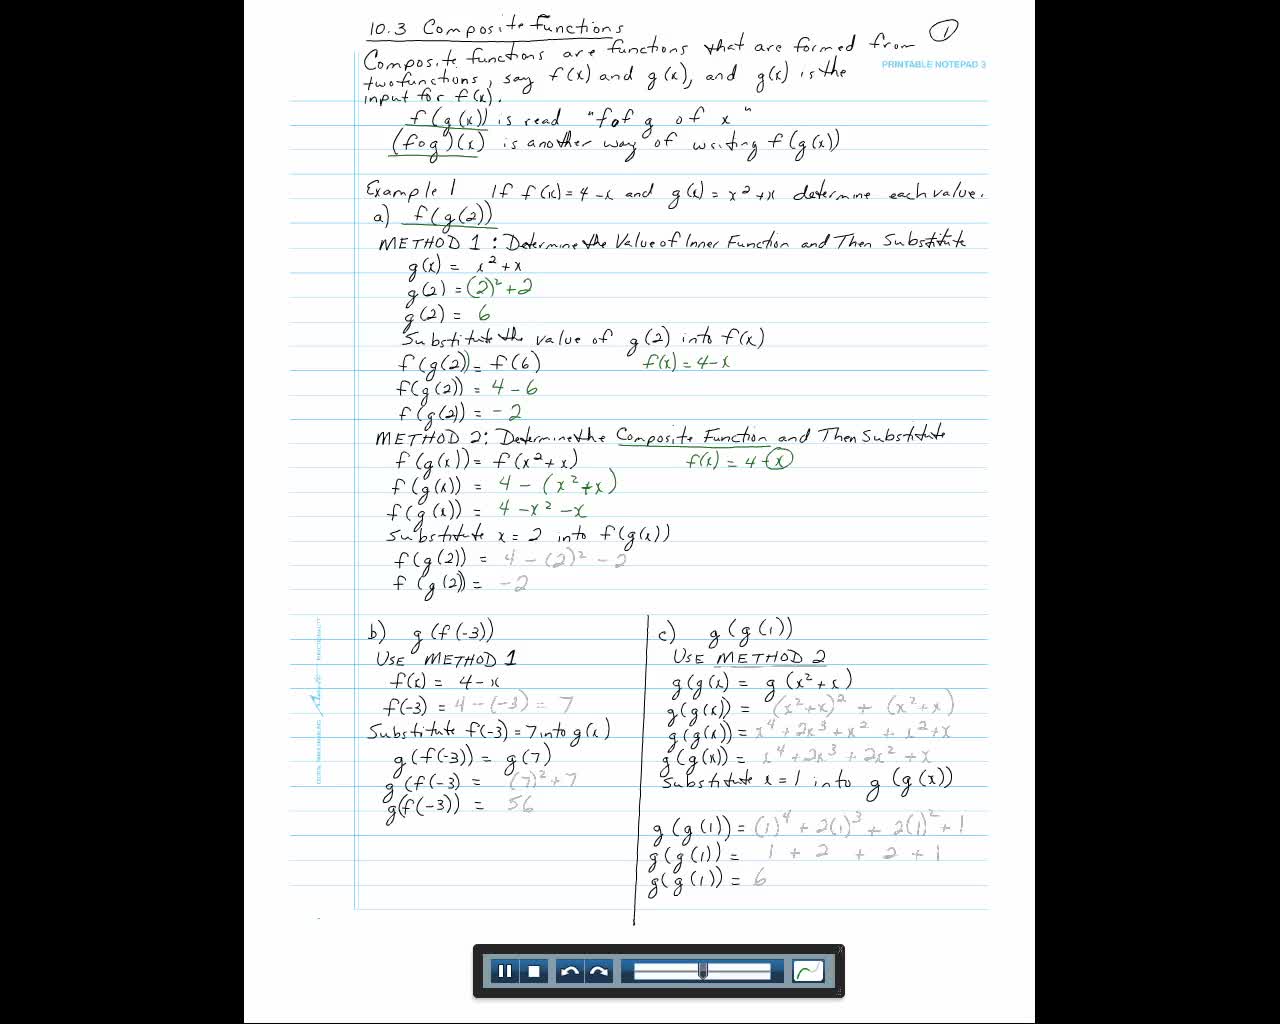 10.3 Composite Functions
1
PRINTABLE NOTEPAD 3
Composite functions are functions that are formed from
two functions, say f(x) and g(x), and g(x) is the
input for f(x).
f(g(x)) is read "f of g of x"
(fog)(x) is another way of writing f(g(x))
Example 1 If f(x) = 4 - x and g(x) = x² + x determine each value.
a) f(g(2))
METHOD 1: Determine the Value of Inner Function and Then Substitute
g(x) = x² + x
g(2) = (2)² + 2
g(2) = 6
Substitute the value of g(2) into f(x)
f(g(2)) = f(6) f(x) = 4 - x
f(g(2)) = 4 - 6
f(g(2)) = -2
METHOD 2: Determine the Composite Function and Then Substitute
f(g(x)) = f(x² + x) f(x) = 4 - x
f(g(x)) = 4 - (x² + x)
f(g(x)) = 4 - x² - x
Substitute x = 2 into f(g(x))
f(g(2)) = 4 - (2)² - 2
f(g(2)) = -2
b) g(f(-3))
USE METHOD 1
f(x) = 4 - x
f(-3) = 4 - (-3) = 7
Substitute f(-3) = 7 into g(x)
g(f(-3)) = g(7)
g(f(-3) = (7)² + 7
g(f(-3)) = 56
c) g(g(1))
USE METHOD 2
g(g(x) = g(x² + x)
g(g(x)) = (x² + x)² + (x² + x)
g(g(x)) = x⁴ + 2x³ + x² + x² + x
g(g(x)) = x⁴ + 2x³ + 2x² + x
Substitute x = 1 into g(g(x))
g(g(1)) = (1)⁴ + 2(1)³ + 2(1)² + 1
g(g(1)) = 1 + 2 + 2 + 1
g(g(1)) = 6